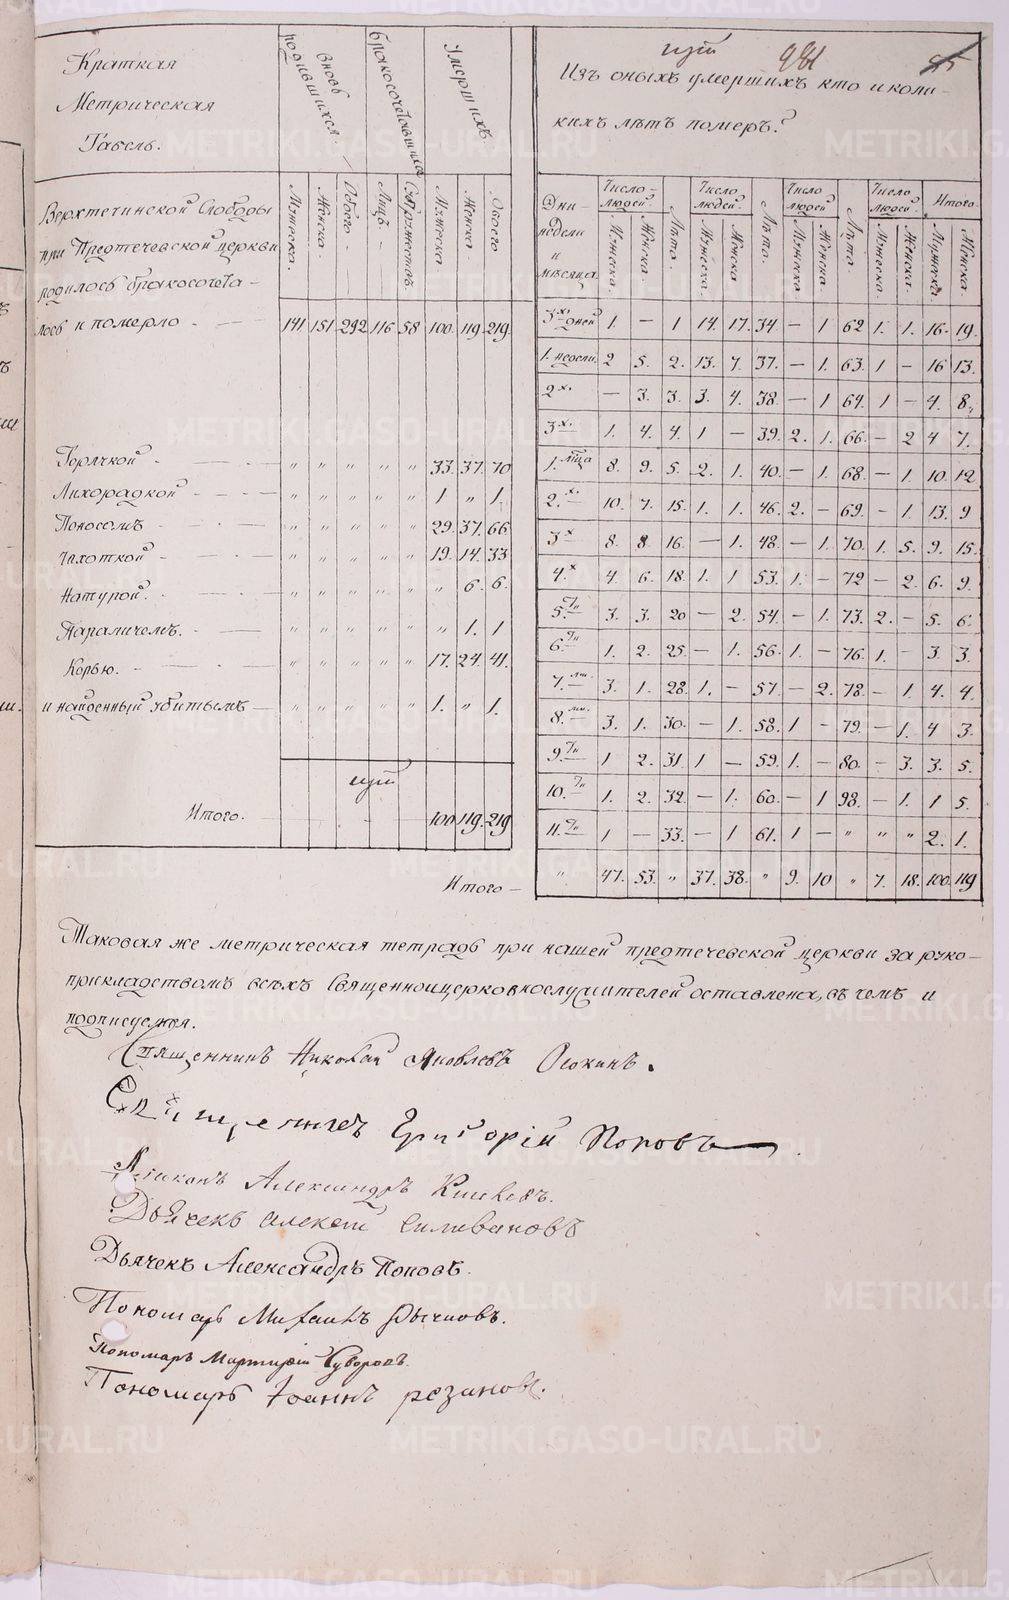 Краткая
Метрическая
Табель.
Вновь родившихся
Бракосочетавшихся
Умершихъ
Мужеска.
Женска.
Обоего
Лицъ
Супружествъ
Мужеска
Женска
Обоего
Верхтетинской Слободы
при Предтечевской церкви
родилось бракосочета-
лось и померло - 141 151 292 116 58 100. 119. 219
Горячкой - " " " " " 33. 37. 70
Лихорадкой - " " " " " 1 " 1.
Поносомъ - " " " " " 29. 37. 66
Чахоткой - " " " " " 19. 14. 33
Натурой. - " " " " " " 6. 6.
Параличемъ. - " " " " " " 1. 1
Корью. - " " " " " 17. 24. 41.
и найденный убитымъ - " " " " " 1. " 1.
Итого. 100 119. 219
981
Изъ оныхъ умершихъ кто и коли-
кихъ лѣтъ померъ?
Дни
недели
и
мѣсяца
Число людей.
Мужеска.
Женска.
Лѣта.
Число людей.
Мужеска
Женска
Лѣта.
Число людей
Мужеска
Женска.
Лѣта
Число людей.
Мужеска.
Женска.
Итого.
Мужеска
Женска.
3хъ дней 1. — 1 14. 17. 34. — 1 62 1. 1. 16. 19.
1. недели 2 5. 2. 13. 7. 37. — 1. 63. 1 — 16 13.
2х. — 3. 3. 3. 4. 38. — 1 64. 1 — 4. 8.
3х. 1. 4. 4. 1 — 39. 2. 1. 66. — 2 4 7.
1. мца 8. 9. 5. 2. 1. 40. — 1. 68. — 1. 10. 12
2.х 10. 7. 15. 1. 1. 46. 2. — 69. — 1. 13. 9
3х 8. 8. 16. — 1. 48. — 1. 70. 1. 5. 9. 15.
4.х 4. 6. 18. 1. 1 53. 1. — 72 — 2. 6. 9.
5. 3. 3. 20 — 2. 54. — 1. 73. 2. — 5. 6.
6. 1. 2. 25. — 1. 56. 1. — 76. 1. — 3. 3.
7. 3. 1. 28. 1. — 57. — 2. 78. — 1. 4. 4.
8. 3. 1. 30. — 1. 58. 1 — 79. — 1. 4 3.
9. 1 2. 31. 1 — 59. 1. — 80. — 3. 3. 5.
10. 1. 2. 32. — 1. 60. — 1 98. — 1. 1 5.
11. 1 — 33. — 1 61. 1 — " " " 2. 1.
Итого — " 47. 53. " 37. 38. " 9. 10 " 7. 18. 100. 119
Таковая же метрическая тетрадь при нашей предтечевской церкви за руко-
прикладствомъ всѣхъ Священноицерковнослужителей оставлена, въ чемъ и
подписуемся.
Священникъ Николай Яковлевъ Осокинъ.
Священникъ Григорій Поповъ
Диаконъ Александръ
Дьячекъ Алексей Силивановъ
Дьячекъ Александръ Поповъ.
Пономарь Михаилъ Рычковъ.
Пономарь Мартирій Суворовъ.
Пономарь Іоаннъ резановъ.
METRIKI.GASO-URAL.RU